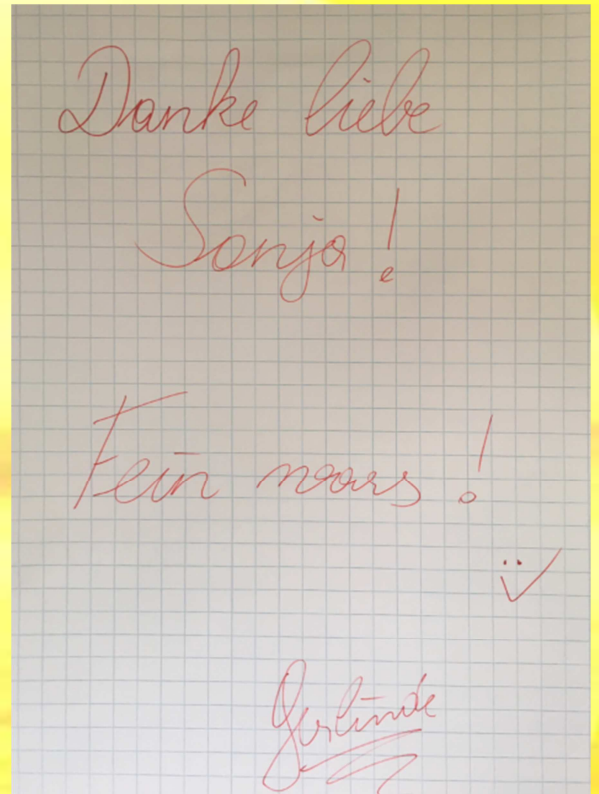 Danke liebe
Sonja!
Fein wars!
Gerlinde